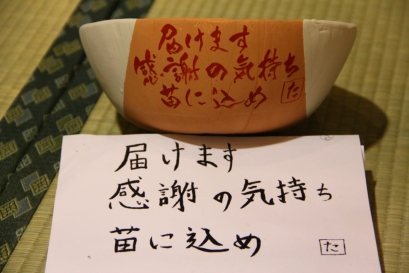 届けます
感謝の気持ち
苗に込め
た
届けます
感謝の気持ち
苗に込め
た